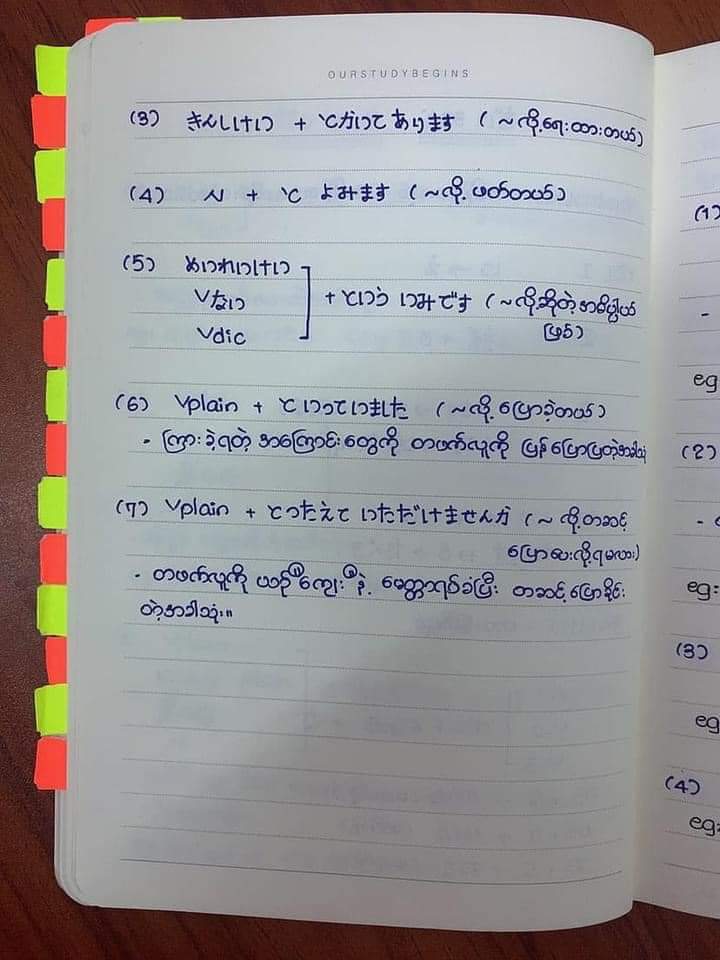 OURSTUDYBEGINS
(3) きんしけい + とかいてあります ( ~လို့ရေးထားတယ်)
(4) N + と よみます (~လို့ ဖတ်တယ်)
(5) めいれいけい
Vない
Vdic
+ という いみです (~လို့ဆိုတဲ့ အဓိပ္ပါယ်
ဖြစ်)
(6) Vplain + と いっていました (~လို့ ပြောခဲ့တယ်)
- ကြားခဲ့ရတဲ့ အကြောင်းတွေကို တဖက်လူကို ပြန်ပြောပြတဲ့အခါသုံး
(7) Vplain + とつたえて いただけませんか (~လို့တဆင့်
ပြောပေးလို့ရမလား)
- တဖက်လူကို ယဉ်ကျေးနဲ့ မေတ္တာရပ်ခံပြီး တဆင့်ပြောခိုင်း
တဲ့အခါသုံး။
(1)
-
eg
(2)
-
eg:
(3)
eg
(4)
eg: